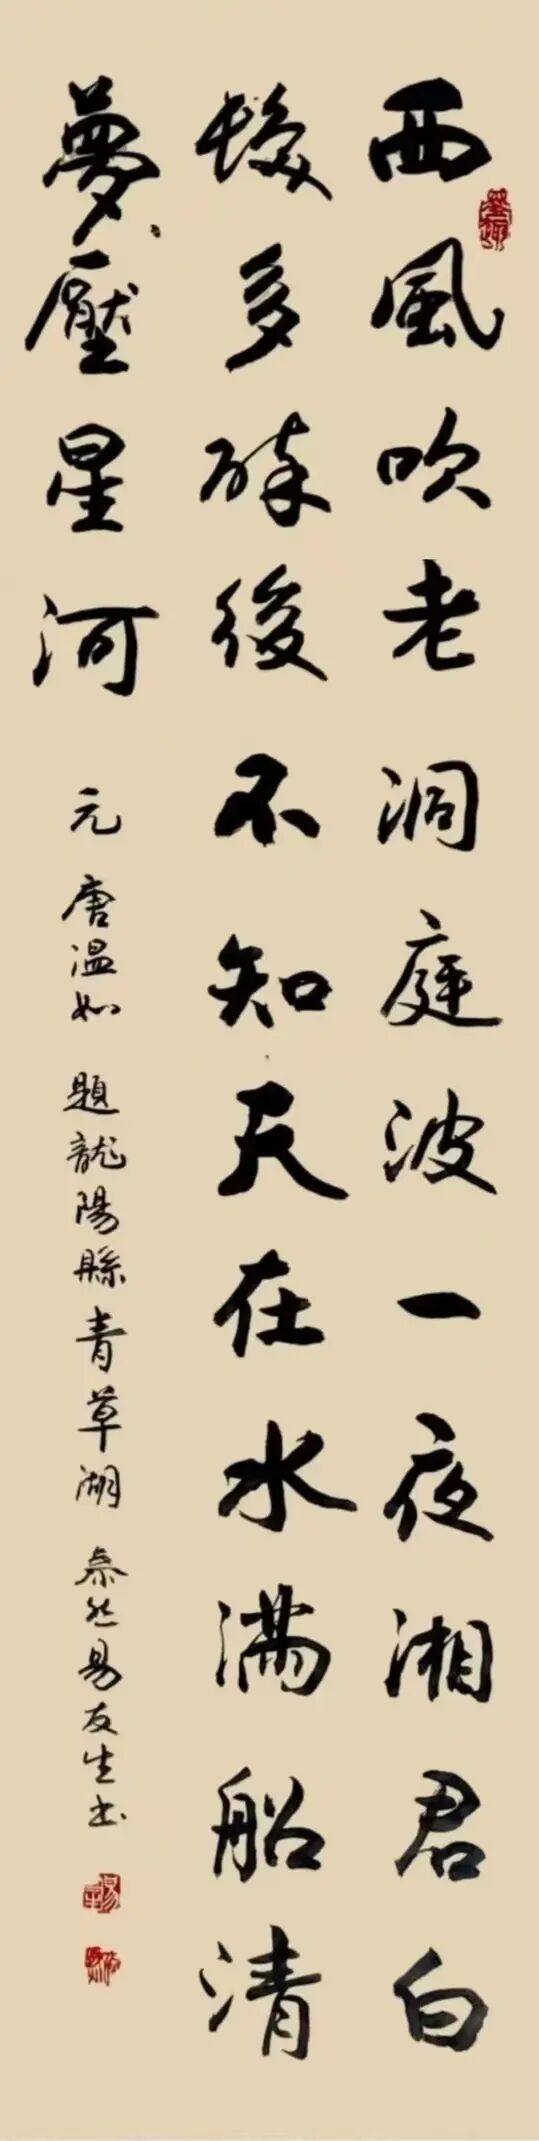 西風吹老洞庭波一夜湘君白
髮多醉後不知天在水滿船清
夢壓星河
元 唐溫如 題龍陽縣青草湖 泰然易友生书